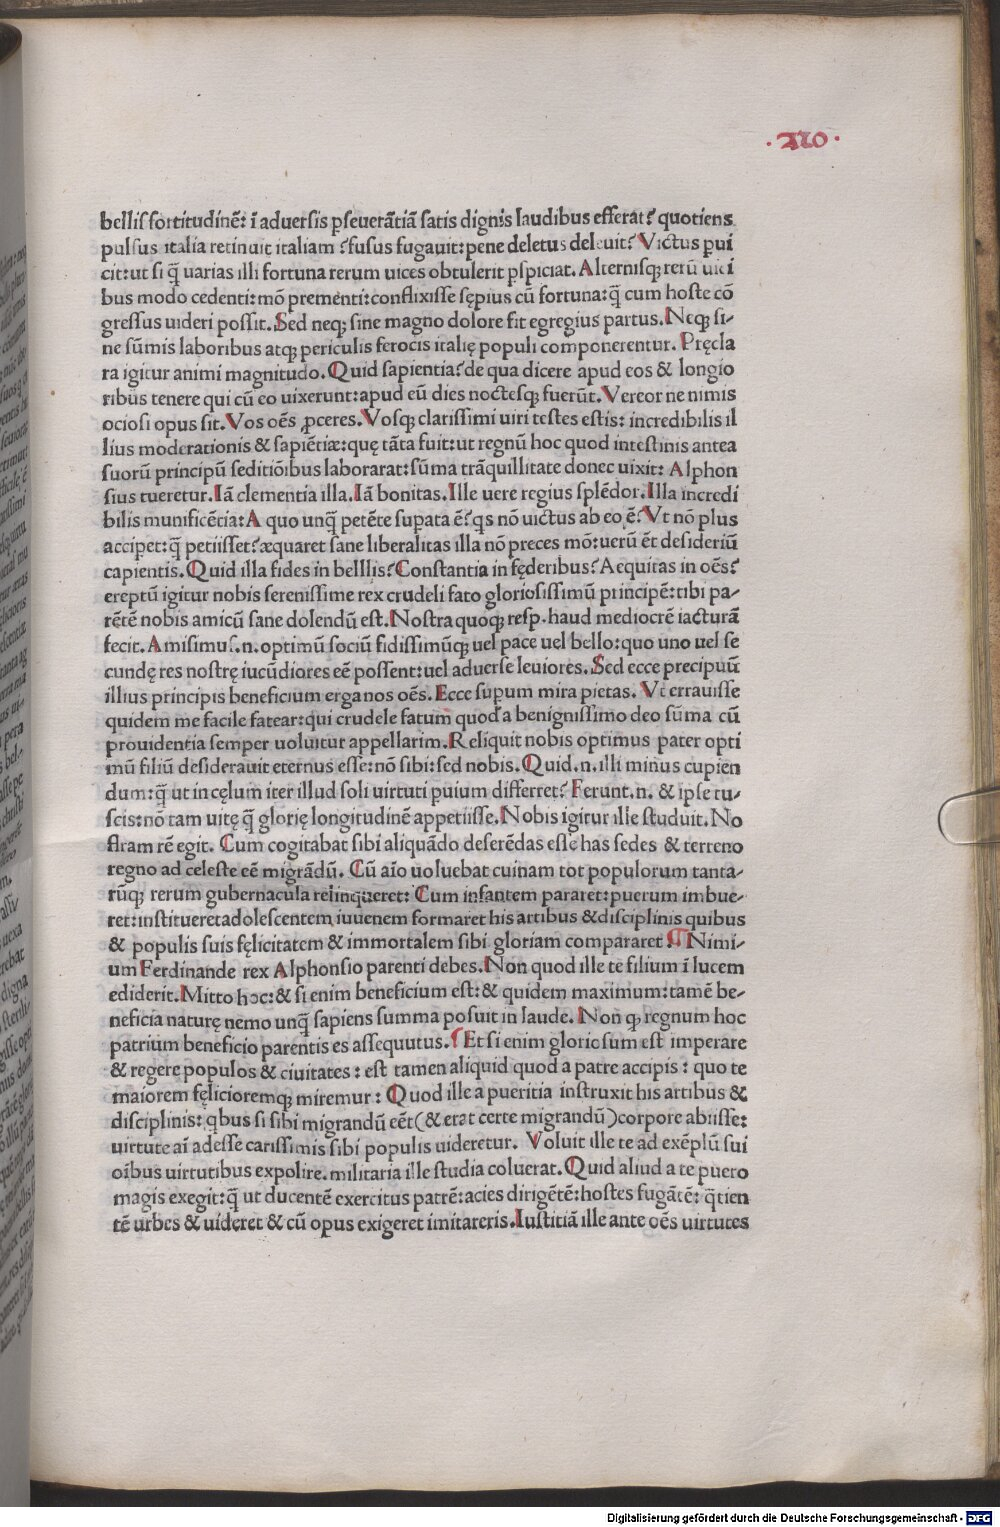 ·210·
bellis fortitudinē: ī adversis pseuerātiā satis dignis laudibus efferat? quotiens
pulsus italia retinuit italiam? fusus fugauit: pene deletus deleuit? Victus pui
cit: ut si q̄ uarias illi fortuna rerum uices obtulerit pspiciat. Alternisq; rerū uici
bus modo cedenti: mō prementi: conflixisse sępius cū fortuna: q̄ cum hoste cō
gressus uideri possit. Sed neq; sine magno dolore fit egregius partus. Neq; si-
ne sūmis laboribus atq; periculis ferocis italię populi componerentur. Pręcla
ra igitur animi magnitudo. Quid sapientia? de qua dicere apud eos & longio
ribus tenere qui cū eo uixerunt: apud eū dies noctesq; fuerūt. Vereor ne nimis
ociosi opus sit. Vos oēs ꝓceres. Vosq; clarissimi uiri testes estis: incredibilis il
lius moderationis & sapiētiæ: quę tāta fuit: ut regnū hoc quod intestinis antea
suorū principū seditiōibus laborarat: sūma trāquillitate donec uixit: Alphon
sius tueretur. Iā clementia illa. Iā bonitas. Ille uere regius splēdor. Illa incredi
bilis munificētia: A quo unq̄ petēte supata ē? qs nō uictus ab eo ē? Vt nō plus
acciperet: q̄ petiisset? æquaret sane liberalitas illa nō preces mō: uerū ēt desideriū
capientis. Quid illa fides in belllis? Constantia in fęderibus? Aequitas in oēs?
ereptū igitur nobis serenissime rex crudeli fato gloriosissimū principē: tibi pa-
rētē nobis amicū sane dolendū est. Nostra quoq; resp. haud mediocrē iacturā
fecit. Amisimus .n. optimū sociū fidissimūq; uel pace uel bello: quo uno uel se
cundę res nostrę iucūdiores eē possent: uel aduerse leuiores. Sed ecce precipuū
illius principis beneficium erga nos oēs. Ecce supum mira pietas. Vt errauisse
quidem me facile fatear: qui crudele fatum quod a benignissimo deo sūma cū
prouidentia semper uoluitur appellarim. Reliquit nobis optimus pater opti
mū filiū desiderauit eternus esse: nō sibi: sed nobis. Quid .n. illi minus cupien
dum: q̄ ut in cęlum iter illud soli uirtuti puium differret? Ferunt .n. & ipse tu-
scis: nō tam uitę q̄ glorię longitudinē appetiisse. Nobis igitur ille studuit. No
stram rē egit. Cum cogitabat sibi aliquādo deserēdas esse has sedes & terreno
regno ad celeste eē migrādū. Cū aīo uoluebat cuinam tot populorum tanta-
rūq; rerum gubernacula relinqueret: Cum infantem pararet: puerum imbue-
ret: institueret adolescentem iuuenem formaret his artibus & disciplinis quibus
& populis suis fęlicitatem & immortalem sibi gloriam compararet ¶ Nimi-
um Ferdinande rex Alphonsio parenti debes. Non quod ille te filium ī lucem
ediderit. Mitto hoc: & si enim beneficium est: & quidem maximum: tamē be-
neficia naturę nemo unq̄ sapiens summa posuit in laude. Non q̧ regnum hoc
patrium beneficio parentis es assequutus. ¶ Et si enim gloriosum est imperare
& regere populos & ciuitates: est tamen aliquid quod a patre accipis: quo te
maiorem fęlicioremq; miremur: Quod ille a pueritia instruxit his artibus &
disciplinis: qbus si sibi migrandū eēt (& erat certe migrandū) corpore abiisse:
uirtute aī adesse carissimis sibi populis uideretur. Voluit ille te ad exēplū sui
oībus uirtutibus expolire. militaria ille studia coluerat. Quid aliud a te puero
magis exegit: q̄ ut ducentē exercitus patrē: acies dirigētē: hostes fugātē: q̄tien
tē urbes & uideret & cū opus exigeret imitareris. Iustitiā ille ante oēs uirtutes
Digitalisierung gefördert durch die Deutsche Forschungsgemeinschaft - DFG